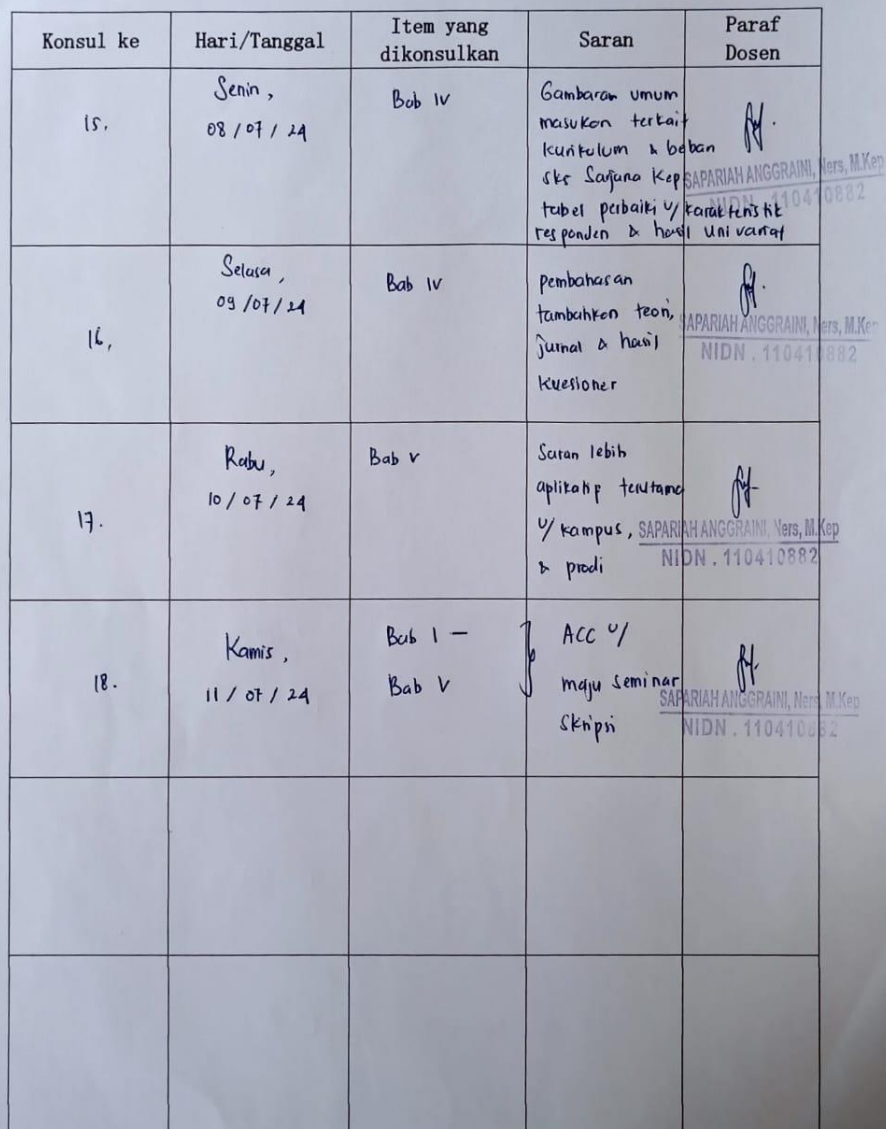 Konsul ke
Hari/Tanggal
Item yang
dikonsulkan
Saran
Paraf
Dosen
15.
Senin,
08/07/24
Bab IV
Gambaran umum
masukan terkait
kurikulum & beban
sks Sarjana Kep
tabel perbaiki u/ karakteristik
responden & hasil univariat
SAPARIAH ANGGRAINI, Ners, M.Kep
NIDN. 110410882
16.
Selasa,
09/07/24
Bab IV
pembahasan
tambahkan teori,
jurnal & hasil
kuesioner
SAPARIAH ANGGRAINI, Ners, M.Kep
NIDN. 110410882
17.
Rabu,
10/07/24
Bab V
Saran lebih
aplikatif terutama
u/ kampus,
& prodi
SAPARIAH ANGGRAINI, Ners, M.Kep
NIDN. 110410882
18.
Kamis,
11/07/24
Bab I -
Bab V
ACC u/
maju seminar
Skripsi
SAPARIAH ANGGRAINI, Ners, M.Kep
NIDN. 110410882